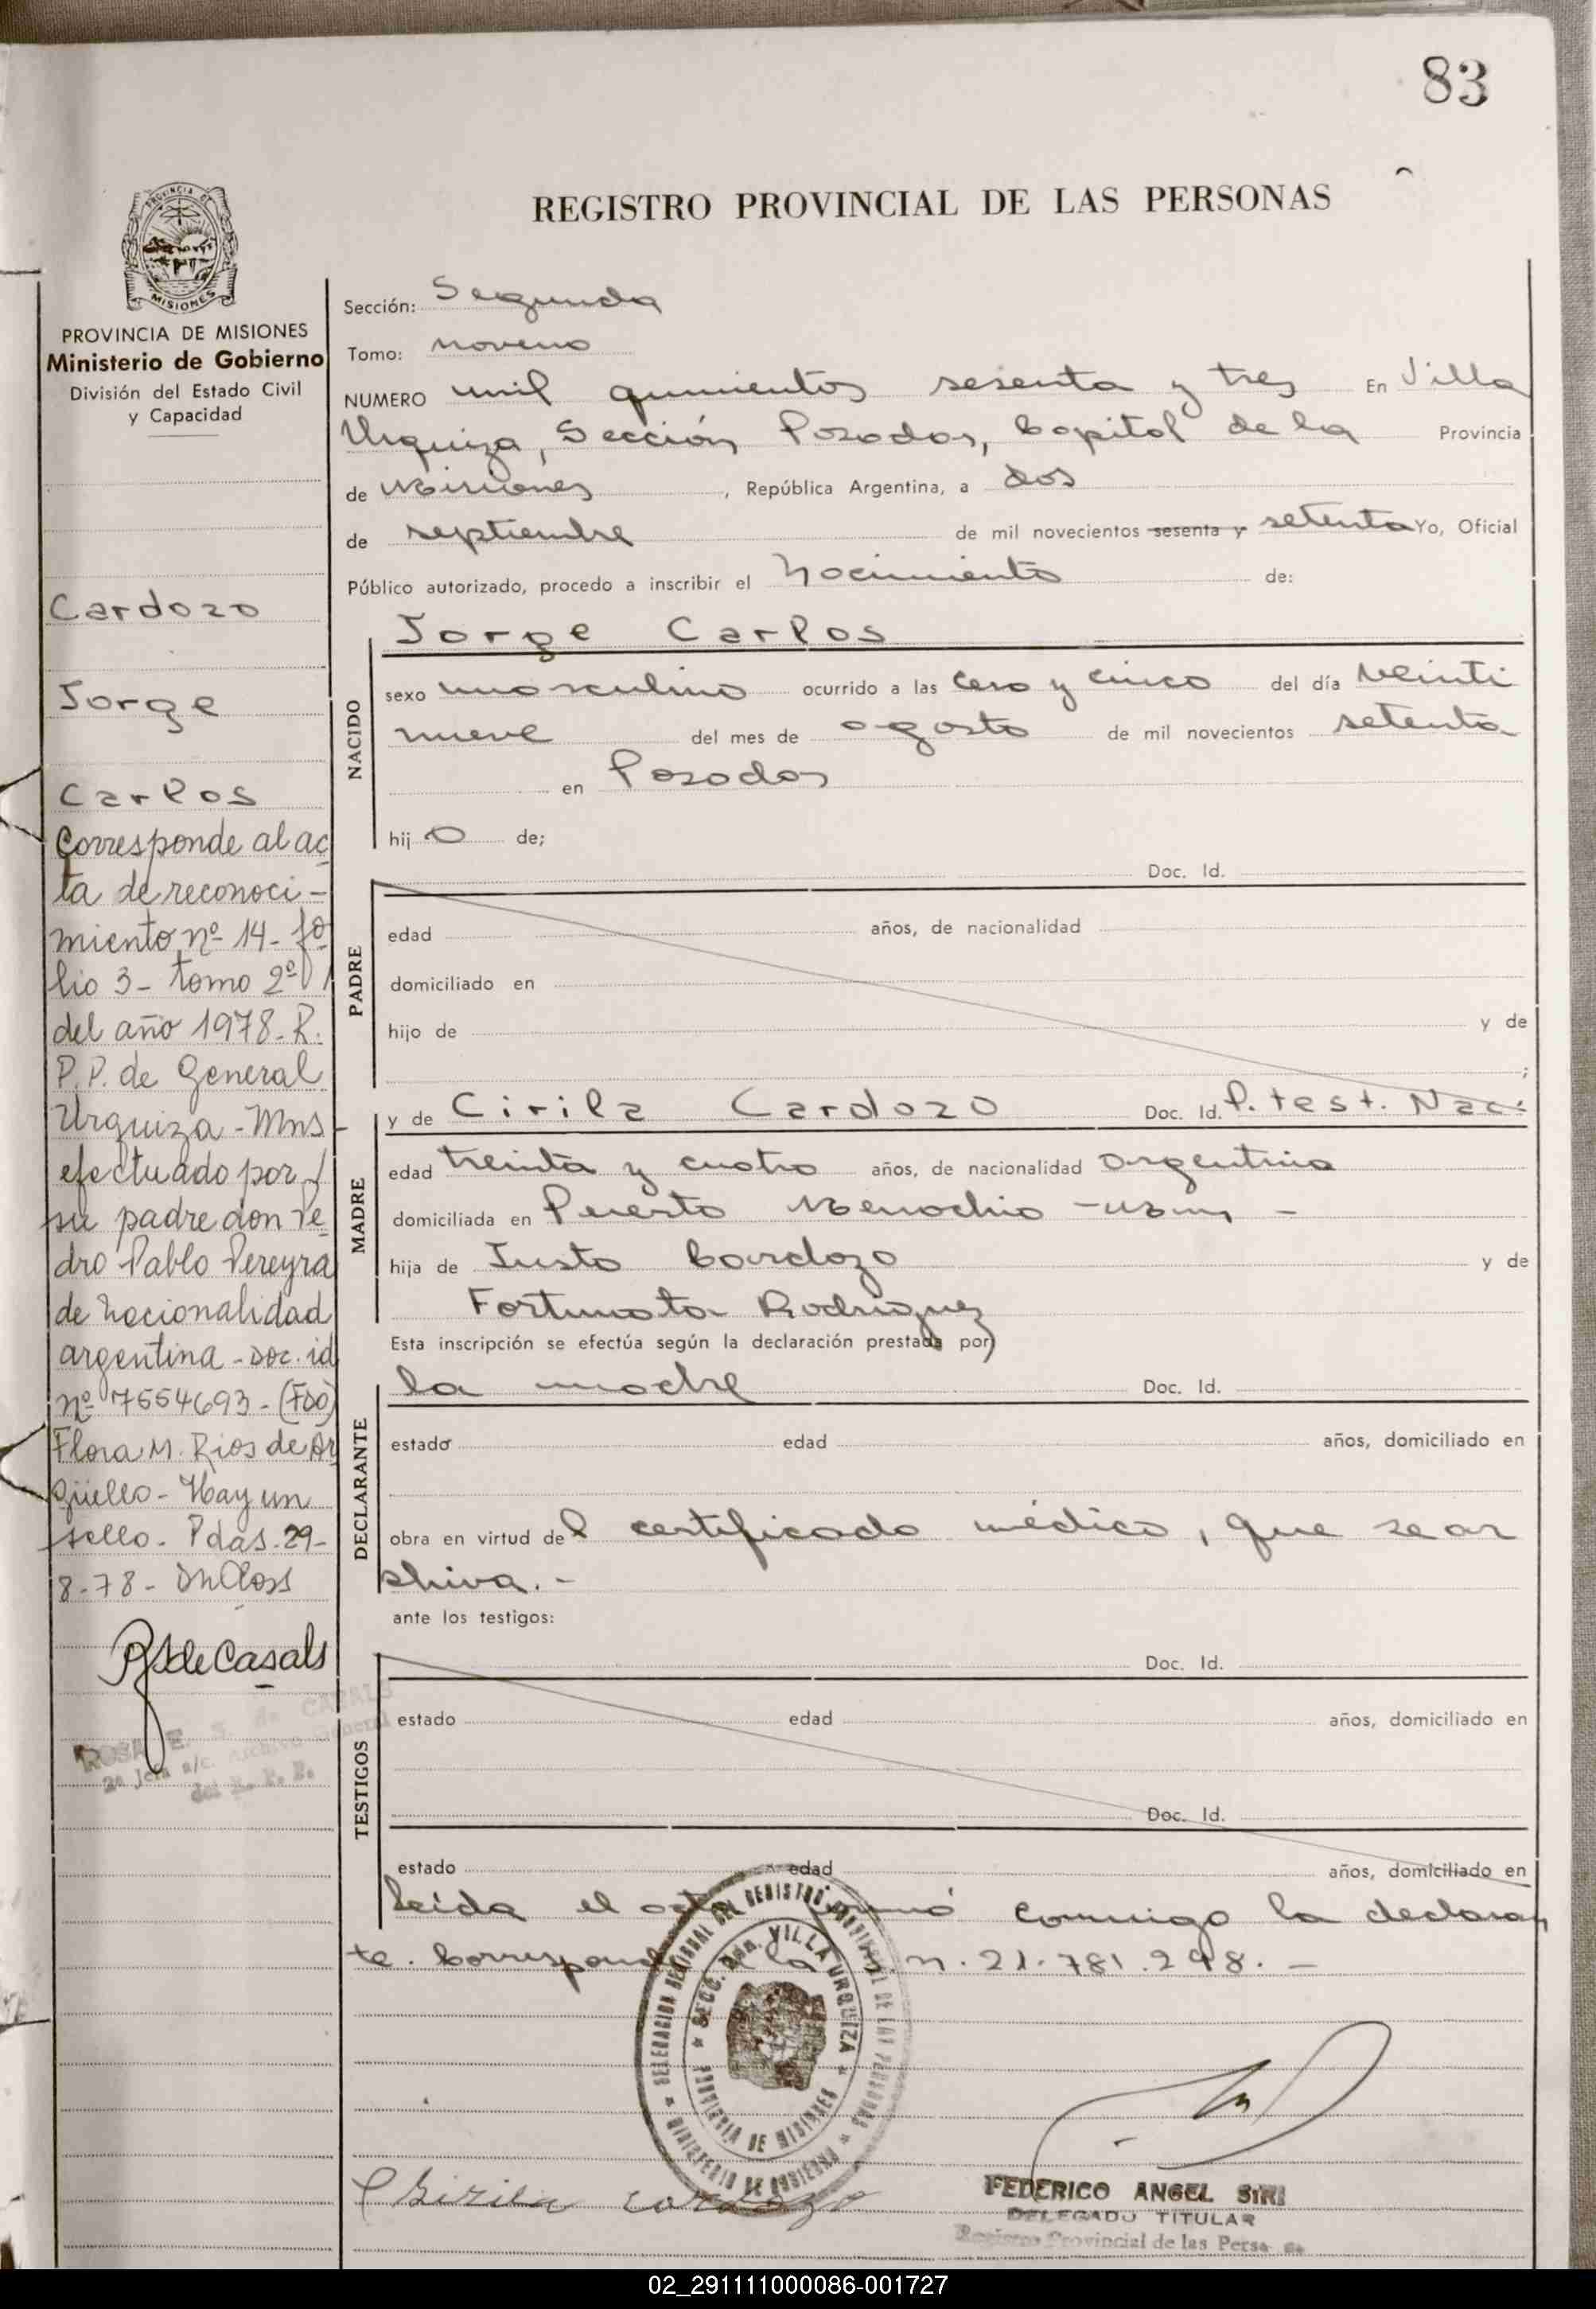 83
REGISTRO PROVINCIAL DE LAS PERSONAS
PROVINCIA DE MISIONES
PROVINCIA DE MISIONES
Ministerio de Gobierno
División del Estado Civil
y Capacidad
Cardozo
Jorge
Carlos
Corresponde al ac
ta de reconoci-
miento nº 14- fo
lio 3- tomo 2º
del año 1978- R.
P.P. de General
Urquiza - Mns
efectuado por
su padre don Pe
dro Pablo Pereyra
de nacionalidad
argentina - Doc. id
nº 7554693 - (Fdo)
Flora M. Rios de Ar
güello - Hay un
sello. Pdas. 29-
8-78-
RSdeCasals
ROSA E. S. de CASALS
2ª Jefa a/c. Archivo General
del R. P. P.
Sección: Segunda
Tomo: noveno
NUMERO mil quinientos sesenta y tres En Villa
Urquiza, Sección Posadas, Capital de la Provincia
de Misiones, República Argentina, a dos
de septiembre de mil novecientos sesenta y setenta Yo, Oficial
Público autorizado, procedo a inscribir el Nacimiento de:
NACIDO
Jorge Carlos
sexo masculino ocurrido a las cero y cinco del día veinti
nueve del mes de agosto de mil novecientos setenta
en Posadas
hij o de;
Doc. Id.
PADRE
edad años, de nacionalidad
domiciliado en
hijo de y de
;
MADRE
y de Cirila Cardozo Doc. Id. P. test. Nac:
edad treinta y cuatro años, de nacionalidad argentina
domiciliada en Puerto Menochio -
hija de Justo Cardozo y de
Fortunata Rodriguez
Esta inscripción se efectúa según la declaración prestada por
DECLARANTE
la madre Doc. Id.
estado edad años, domiciliado en
obra en virtud del certificado médico, que se ar
chiva. -
ante los testigos:
TESTIGOS
Doc. Id.
estado edad años, domiciliado en
Doc. Id.
estado edad años, domiciliado en
Leída el acta firmó conmigo la declaran
te. Corresponde a la n. 21.781.298. -
DELEGACION REGIONAL DEL REGISTRO PROVINCIAL DE LAS PERSONAS
MINISTERIO DE GOBIERNO
SECC. 2da. VILLA URQUIZA
PROVINCIA DE MISIONES
Sirila cardozo
FEDERICO ANGEL SIRI
DELEGADO TITULAR
Registro Provincial de las Personas
02_291111000086-001727